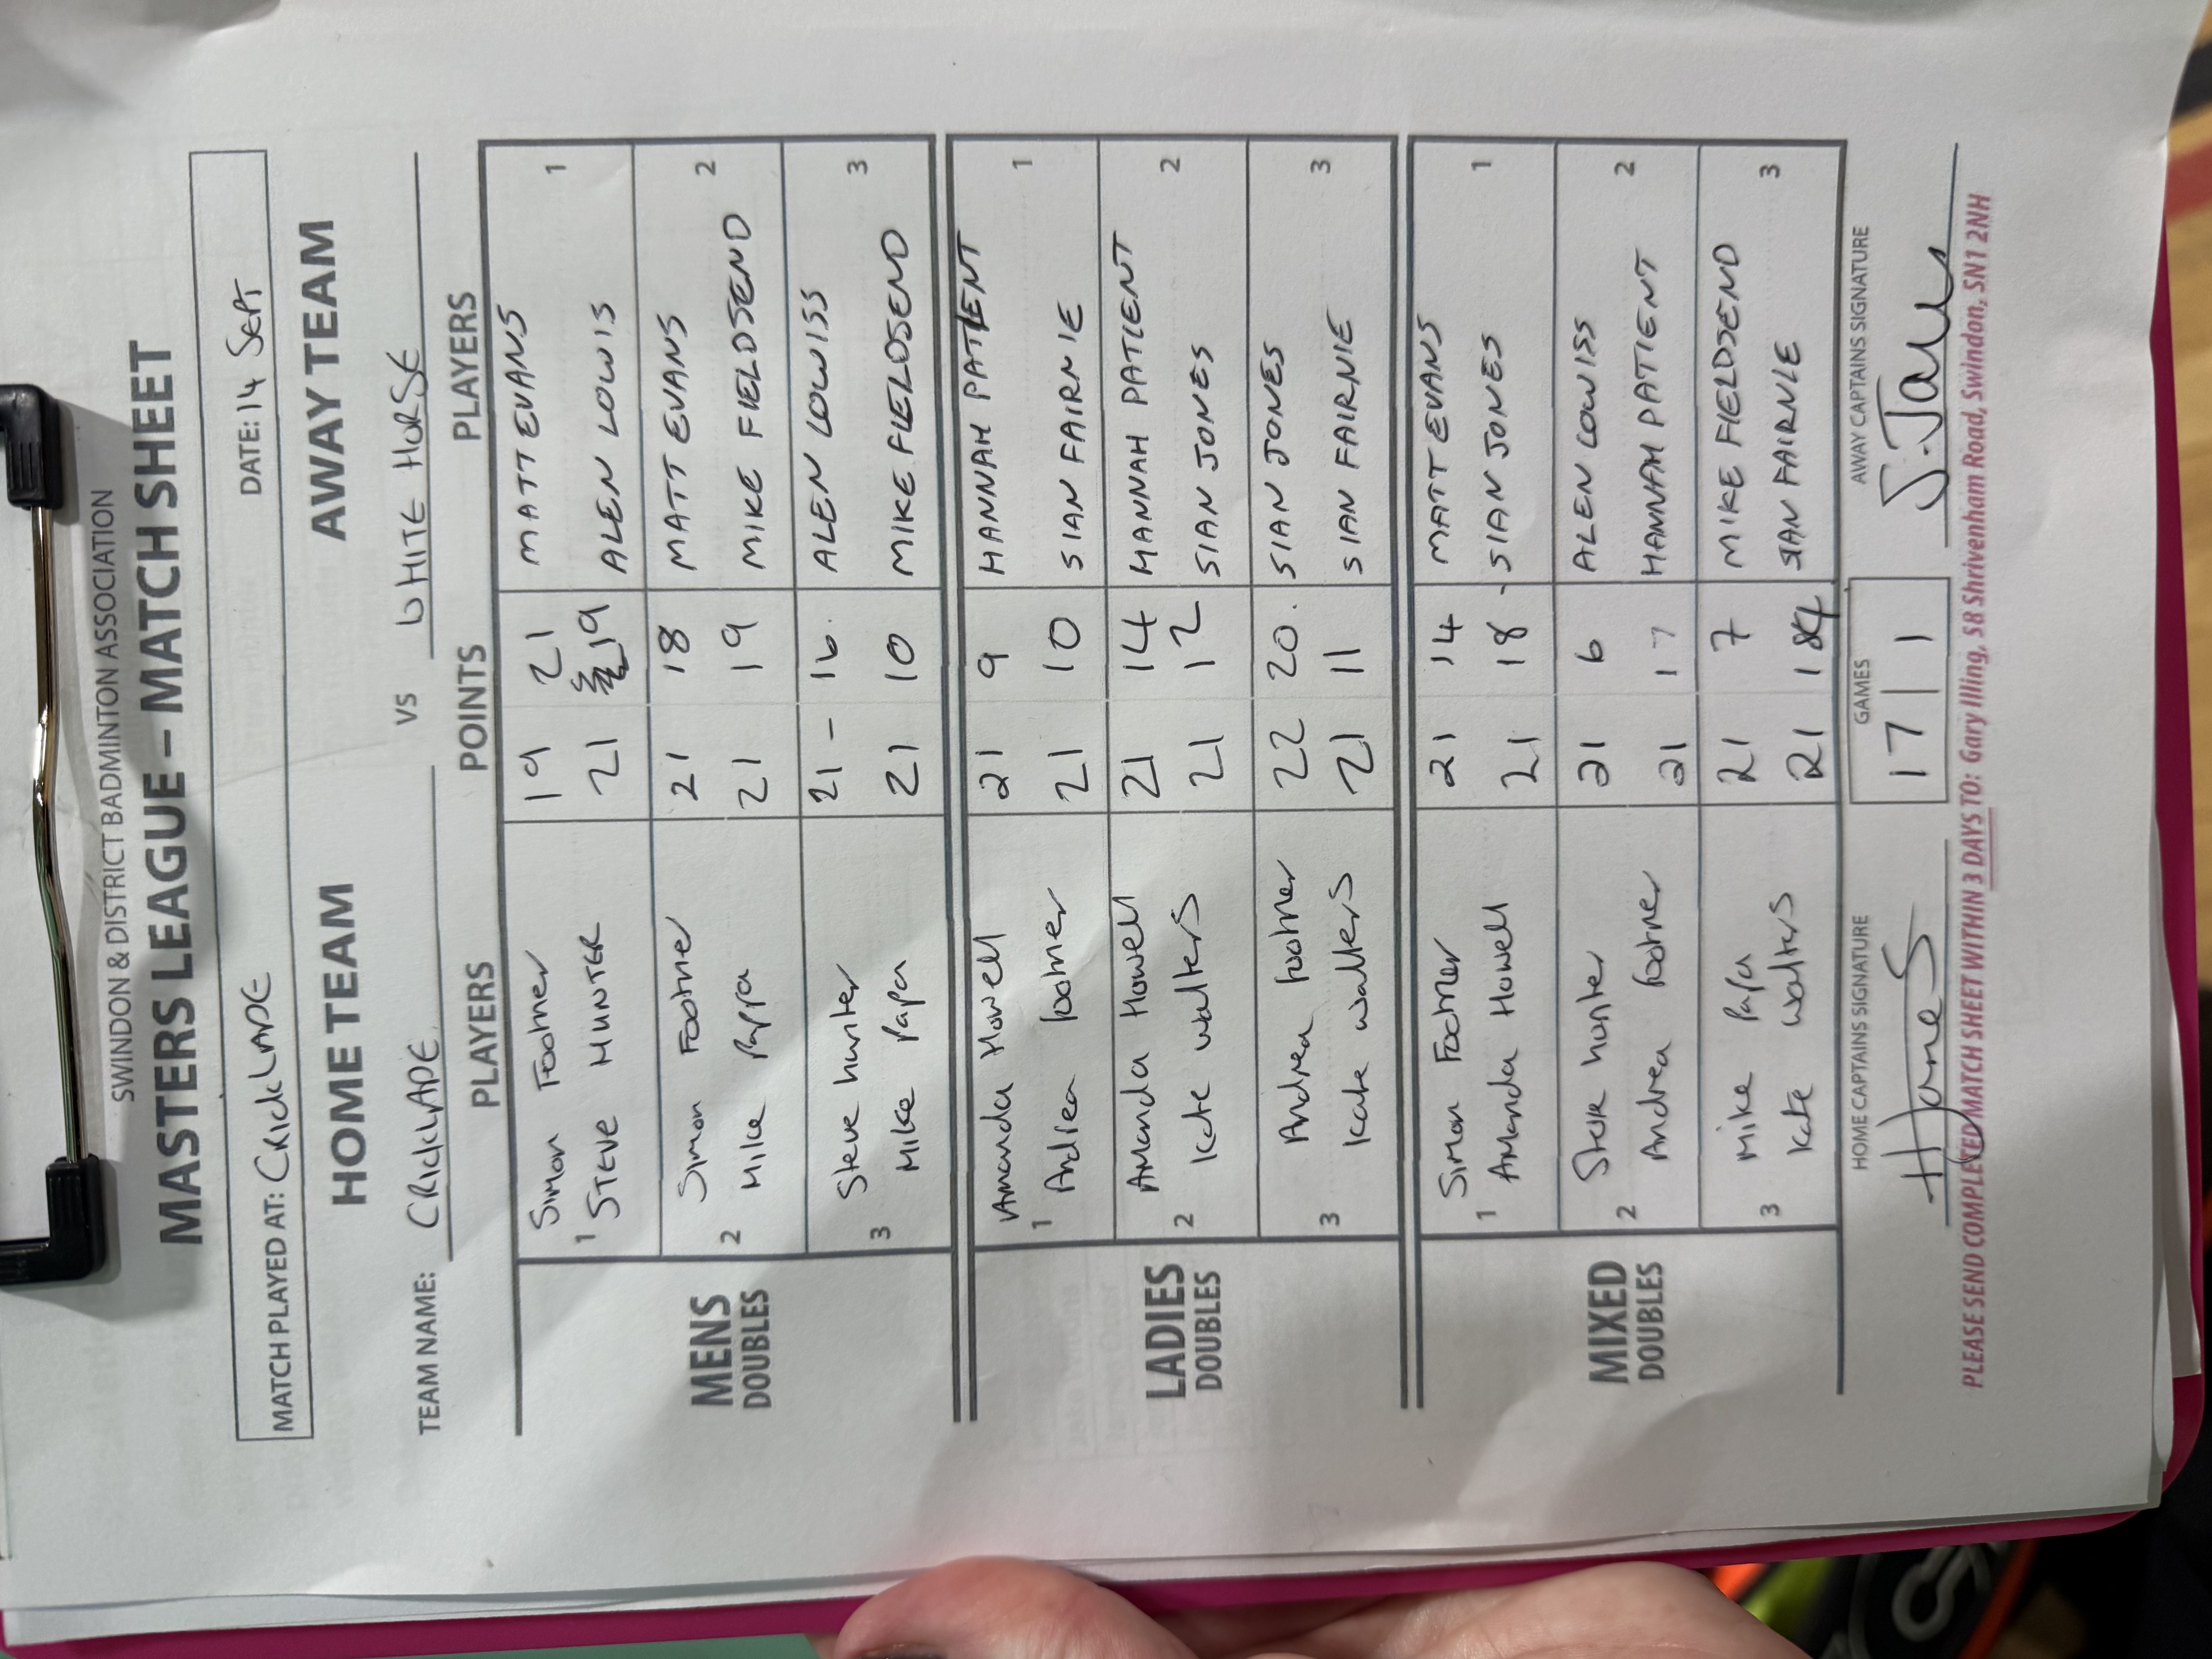 SWINDON & DISTRICT BADMINTON ASSOCIATION
MASTERS LEAGUE – MATCH SHEET
MATCH PLAYED AT: CRICKLADE DATE: 14 SEPT
HOME TEAM AWAY TEAM
TEAM NAME: CRICKLADE VS WHITE HORSE
PLAYERS POINTS PLAYERS
MENS DOUBLES
1 Simon Footner 19 21 MATT EVANS 1
STEVE HUNTER 21 19 ALEN LOWIS
2 Simon Footner 21 18 MATT EVANS 2
Mike Pappa 21 19 MIKE FIELDSEND
3 Steve hunter 21 - 16. ALEN LOWISS 3
Mike Papa 21 10 MIKE FIELDSEND
LADIES DOUBLES
1 Amanda Howell 21 9 HANNAH PATIENT 1
Andrea footner 21 10 SIAN FAIRNIE
2 Amanda Howell 21 14 HANNAH PATIENT 2
Kate walters 21 12 SIAN JONES
3 Andrea footner 22 20. SIAN JONES 3
Kate walters 21 11 SIAN FAIRNIE
MIXED DOUBLES
1 Simon Footner 21 14 MATT EVANS 1
Amanda Howell 21 18 - SIAN JONES
2 Steve hunter 21 6 ALEN LOWISS 2
Andrea footner 21 17 HANNAH PATIENT
3 Mike Papa 21 7 MIKE FIELDSEND 3
Kate walters 21 SIAN FAIRNIE
HOME CAPTAINS SIGNATURE GAMES AWAY CAPTAINS SIGNATURE
17 | 1
PLEASE SEND COMPLETED MATCH SHEET WITHIN 3 DAYS TO: Gary Illing, 58 Shrivenham Road, Swindon, SN1 2NH